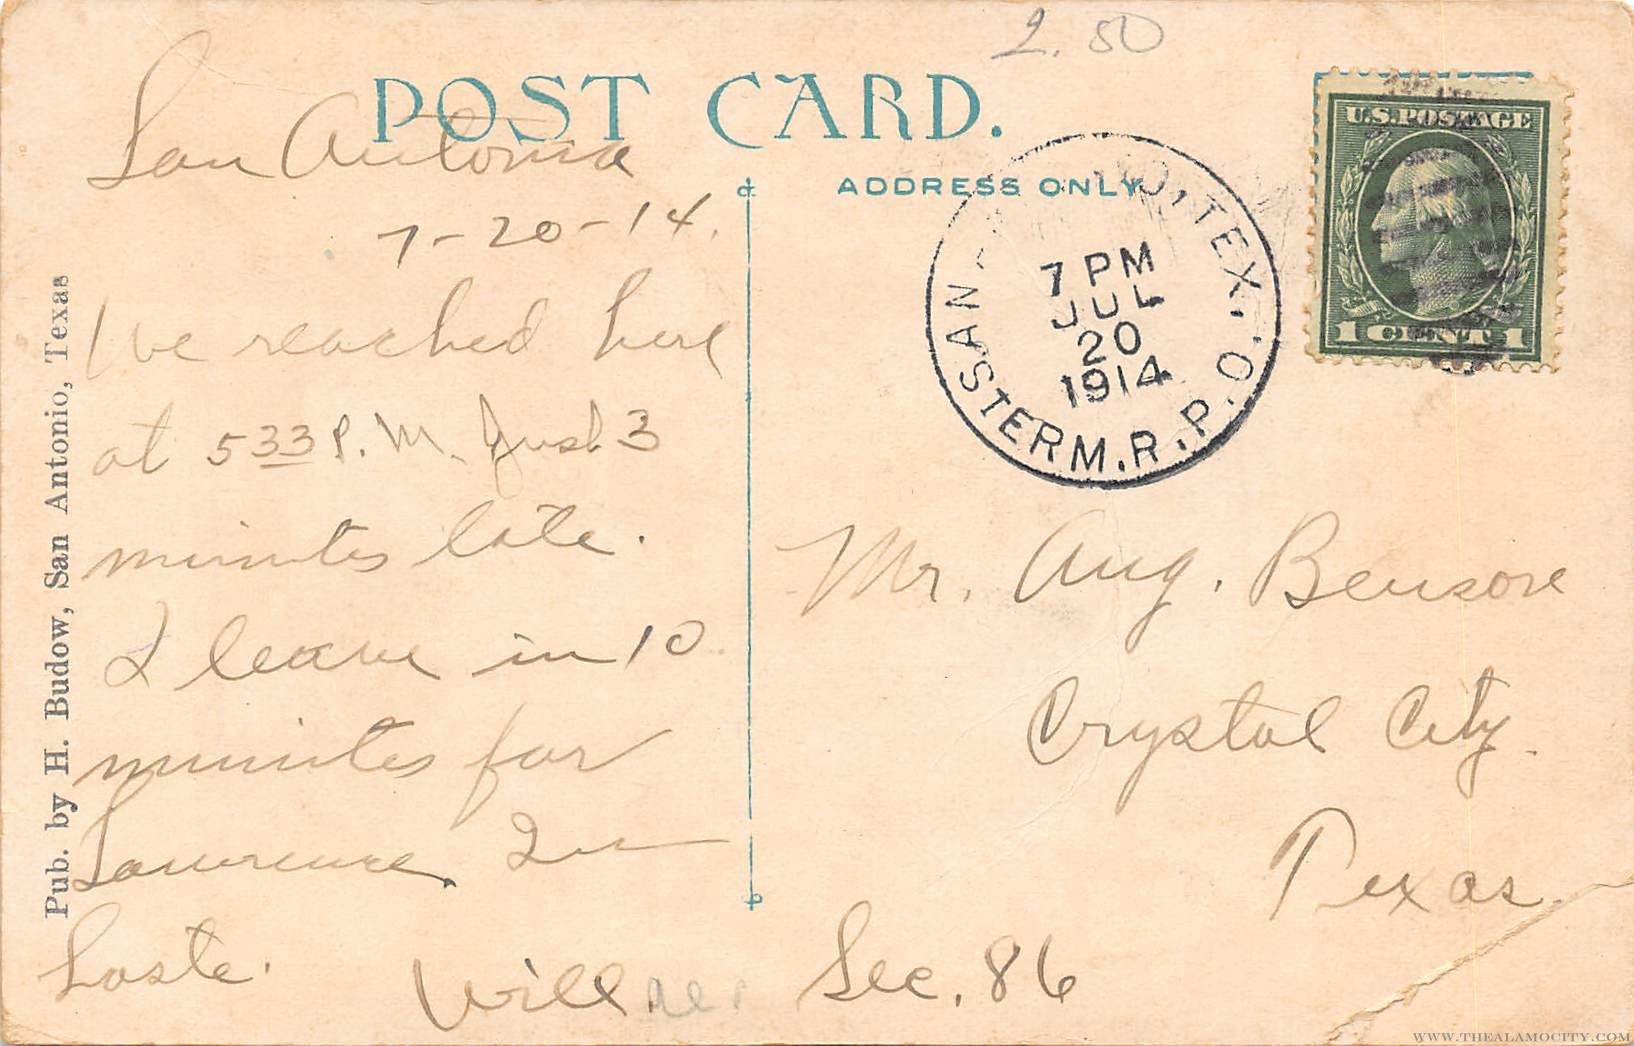 2.50
POST CARD.
ADDRESS ONLY.
U.S. POSTAGE
1 CENT 1
San Antonio
7-20-14.
I've reached here
at 533 P.M. Just 3
minutes late.
I leave in 10
minutes for
Lawrence. In
haste.
Will
SAN O, TEX.
STERM.R.P.O.
7 PM
JUL
20
1914
Mr. Aug.
Crystal City.
Texas.
Sec. 86
Pub. by H. Budow, San Antonio, Texas
WWW.THEALAMOCITY.COM